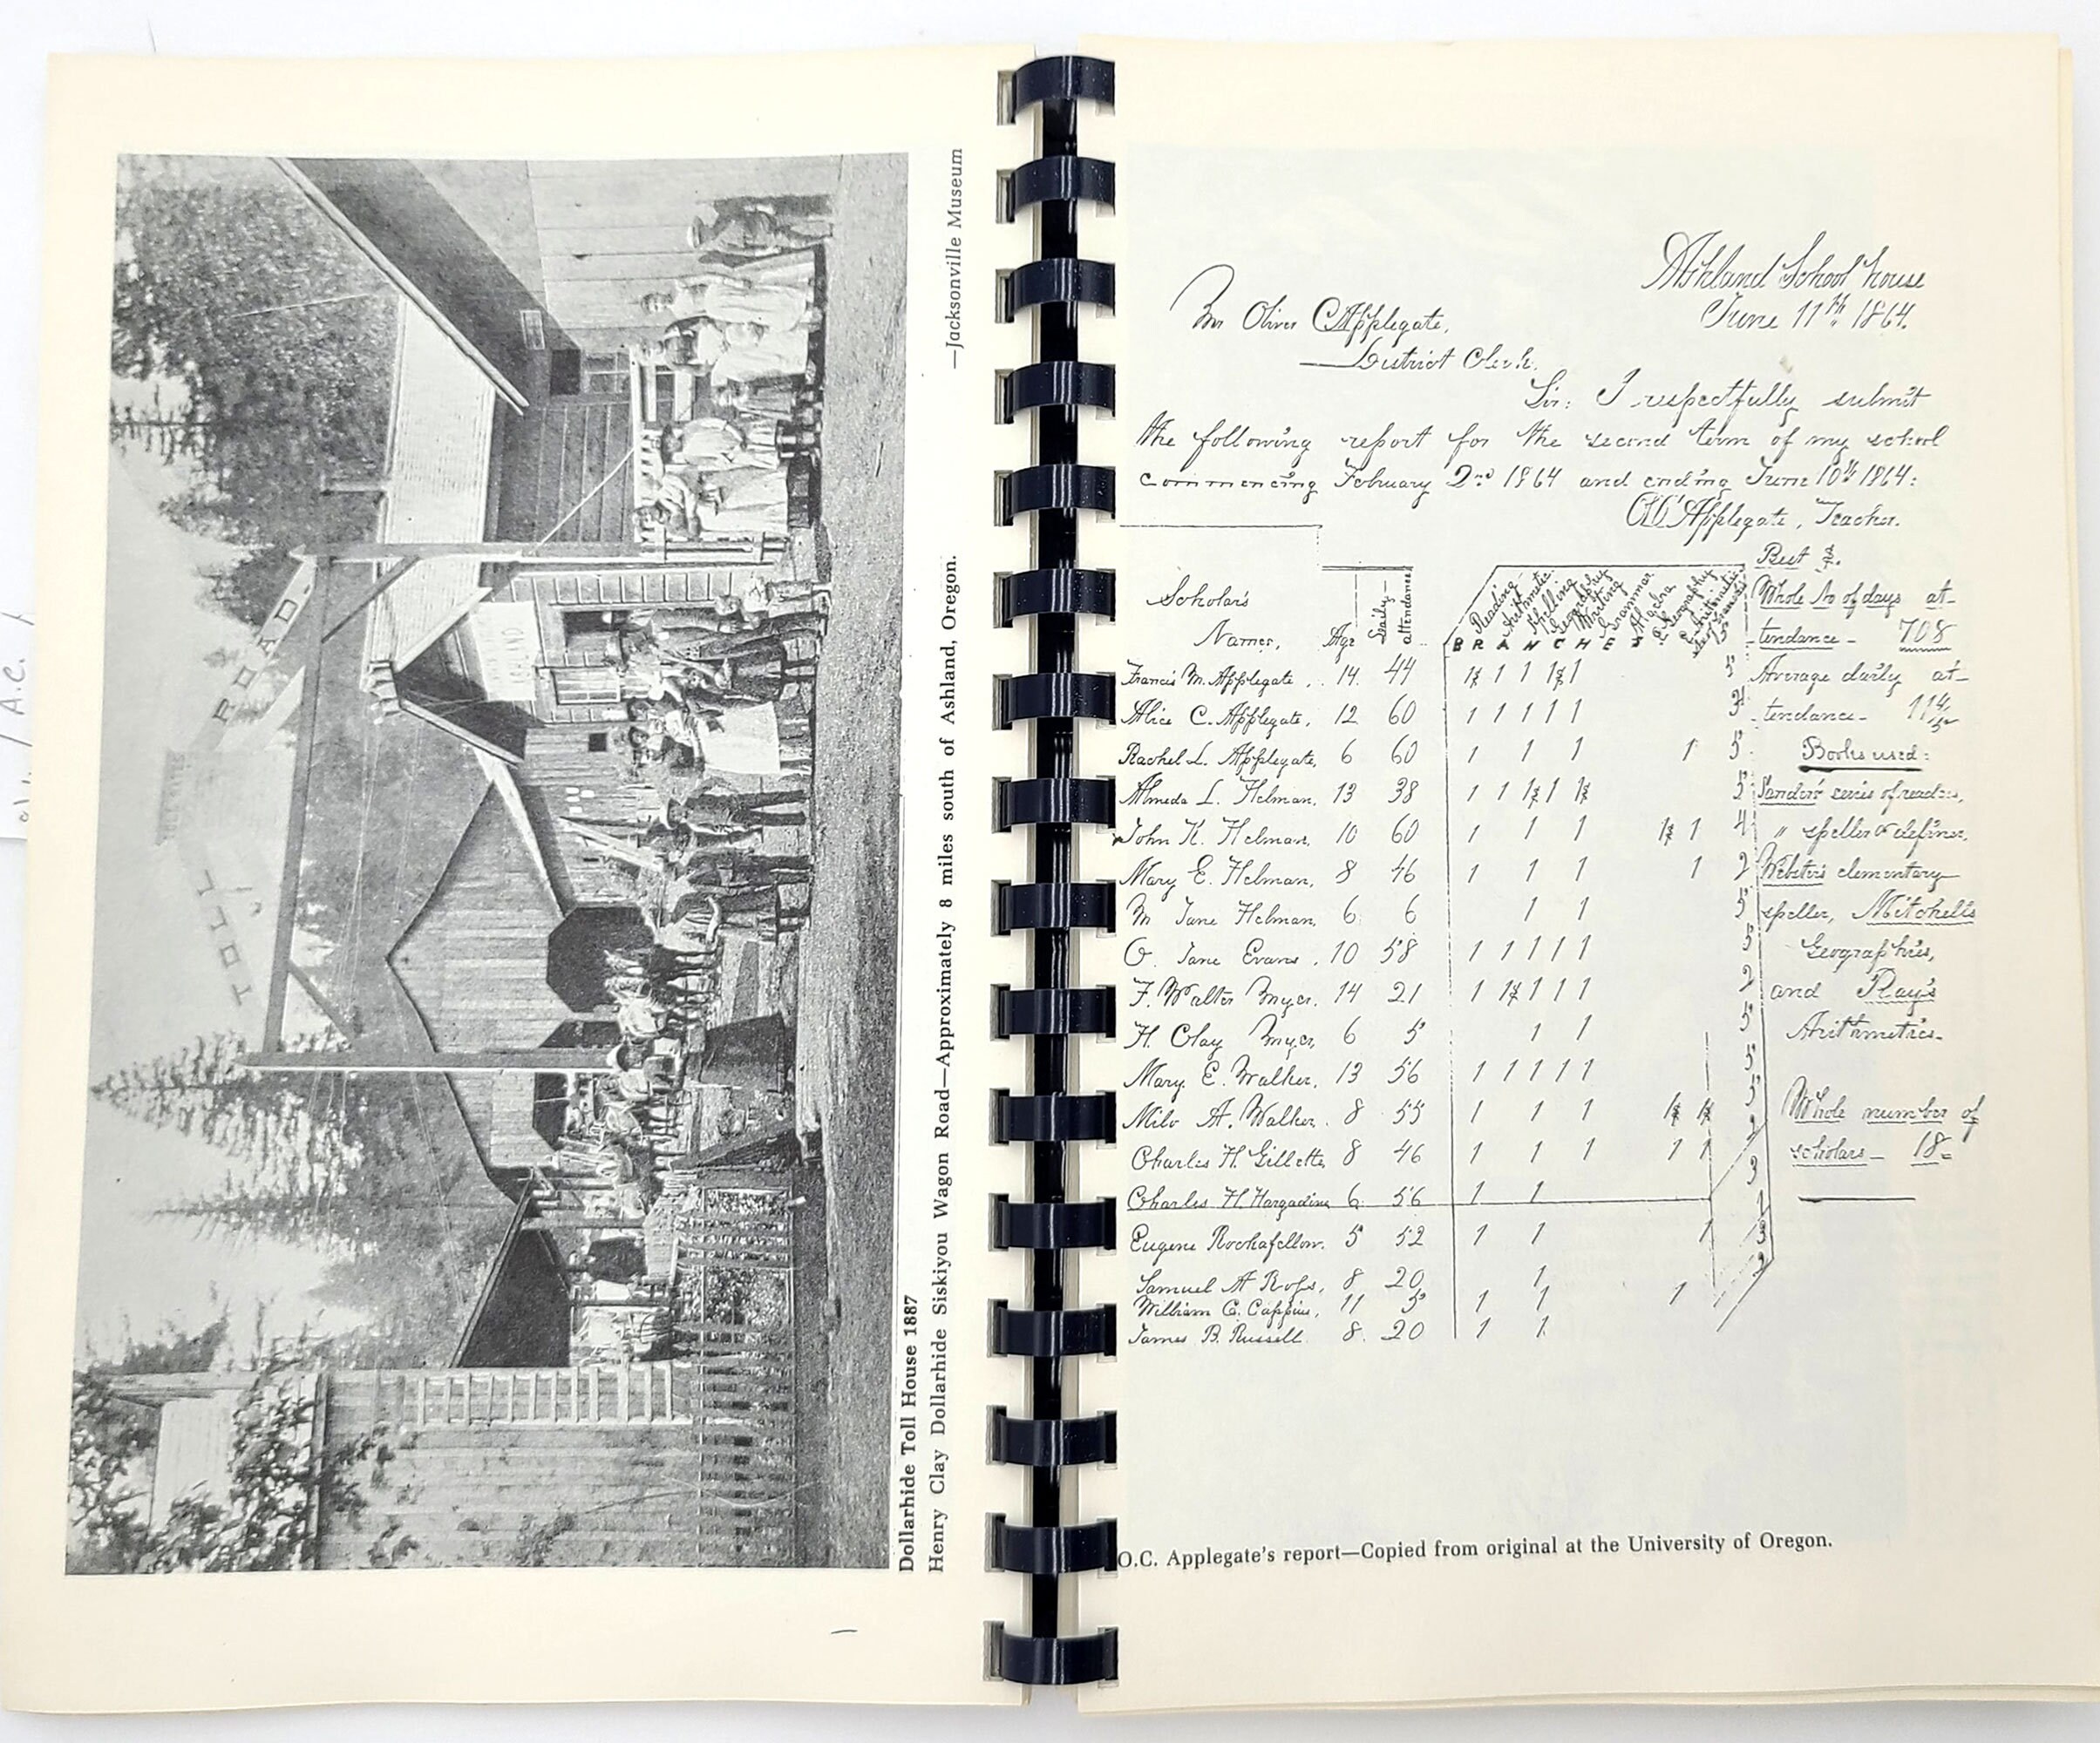 TOLL ROAD
Dollarhide Toll House 1887
Henry Clay Dollarhide Siskiyou Wagon Road—Approximately 8 miles south of Ashland, Oregon.
—Jacksonville Museum
Ashland School house
June 11th 1864.
Mr Oliver C Applegate,
District Clerk.
Sir: I respectfully submit
the following report for the second term of my school
commencing February 2nd 1864 and ending June 10th 1864:
O.C. Applegate, Teacher.
Scholar's
Names, Age Daily attendance
Reading Arithmetic Spelling Geography Writing Grammar Algebra
BRANCHES
Francis M. Applegate, 14. 44
Alice C. Applegate, 12 60
Rachel L. Applegate, 6 60
Almeda L. Helman, 13 38
John K. Helman, 10 60
Mary E. Helman, 8 46
M Jane Helman, 6 6
O. Jane Evans, 10 58
F. Walter Myer. 14 21
H. Clay Myer, 6 5
Mary E. Walker, 13 56
Milo A. Walker. 8 55
Charles H. Gillette, 8 46
Charles H. Hargadine 6 56
Eugene Rockafellow. 5 52
Samuel A Ross, 8 20
William C. 11 5
James B. Russell 8. 20
Best
Whole No of days at-
tendance - 708
Average daily at-
tendance -
Books used:
Sander's series of readers,
" speller & definer,
Webster's elementary
speller, Mitchell's
Geographies,
and Ray's
Arithmetics.
Whole number of
scholars - 18
O.C. Applegate's report—Copied from original at the University of Oregon.